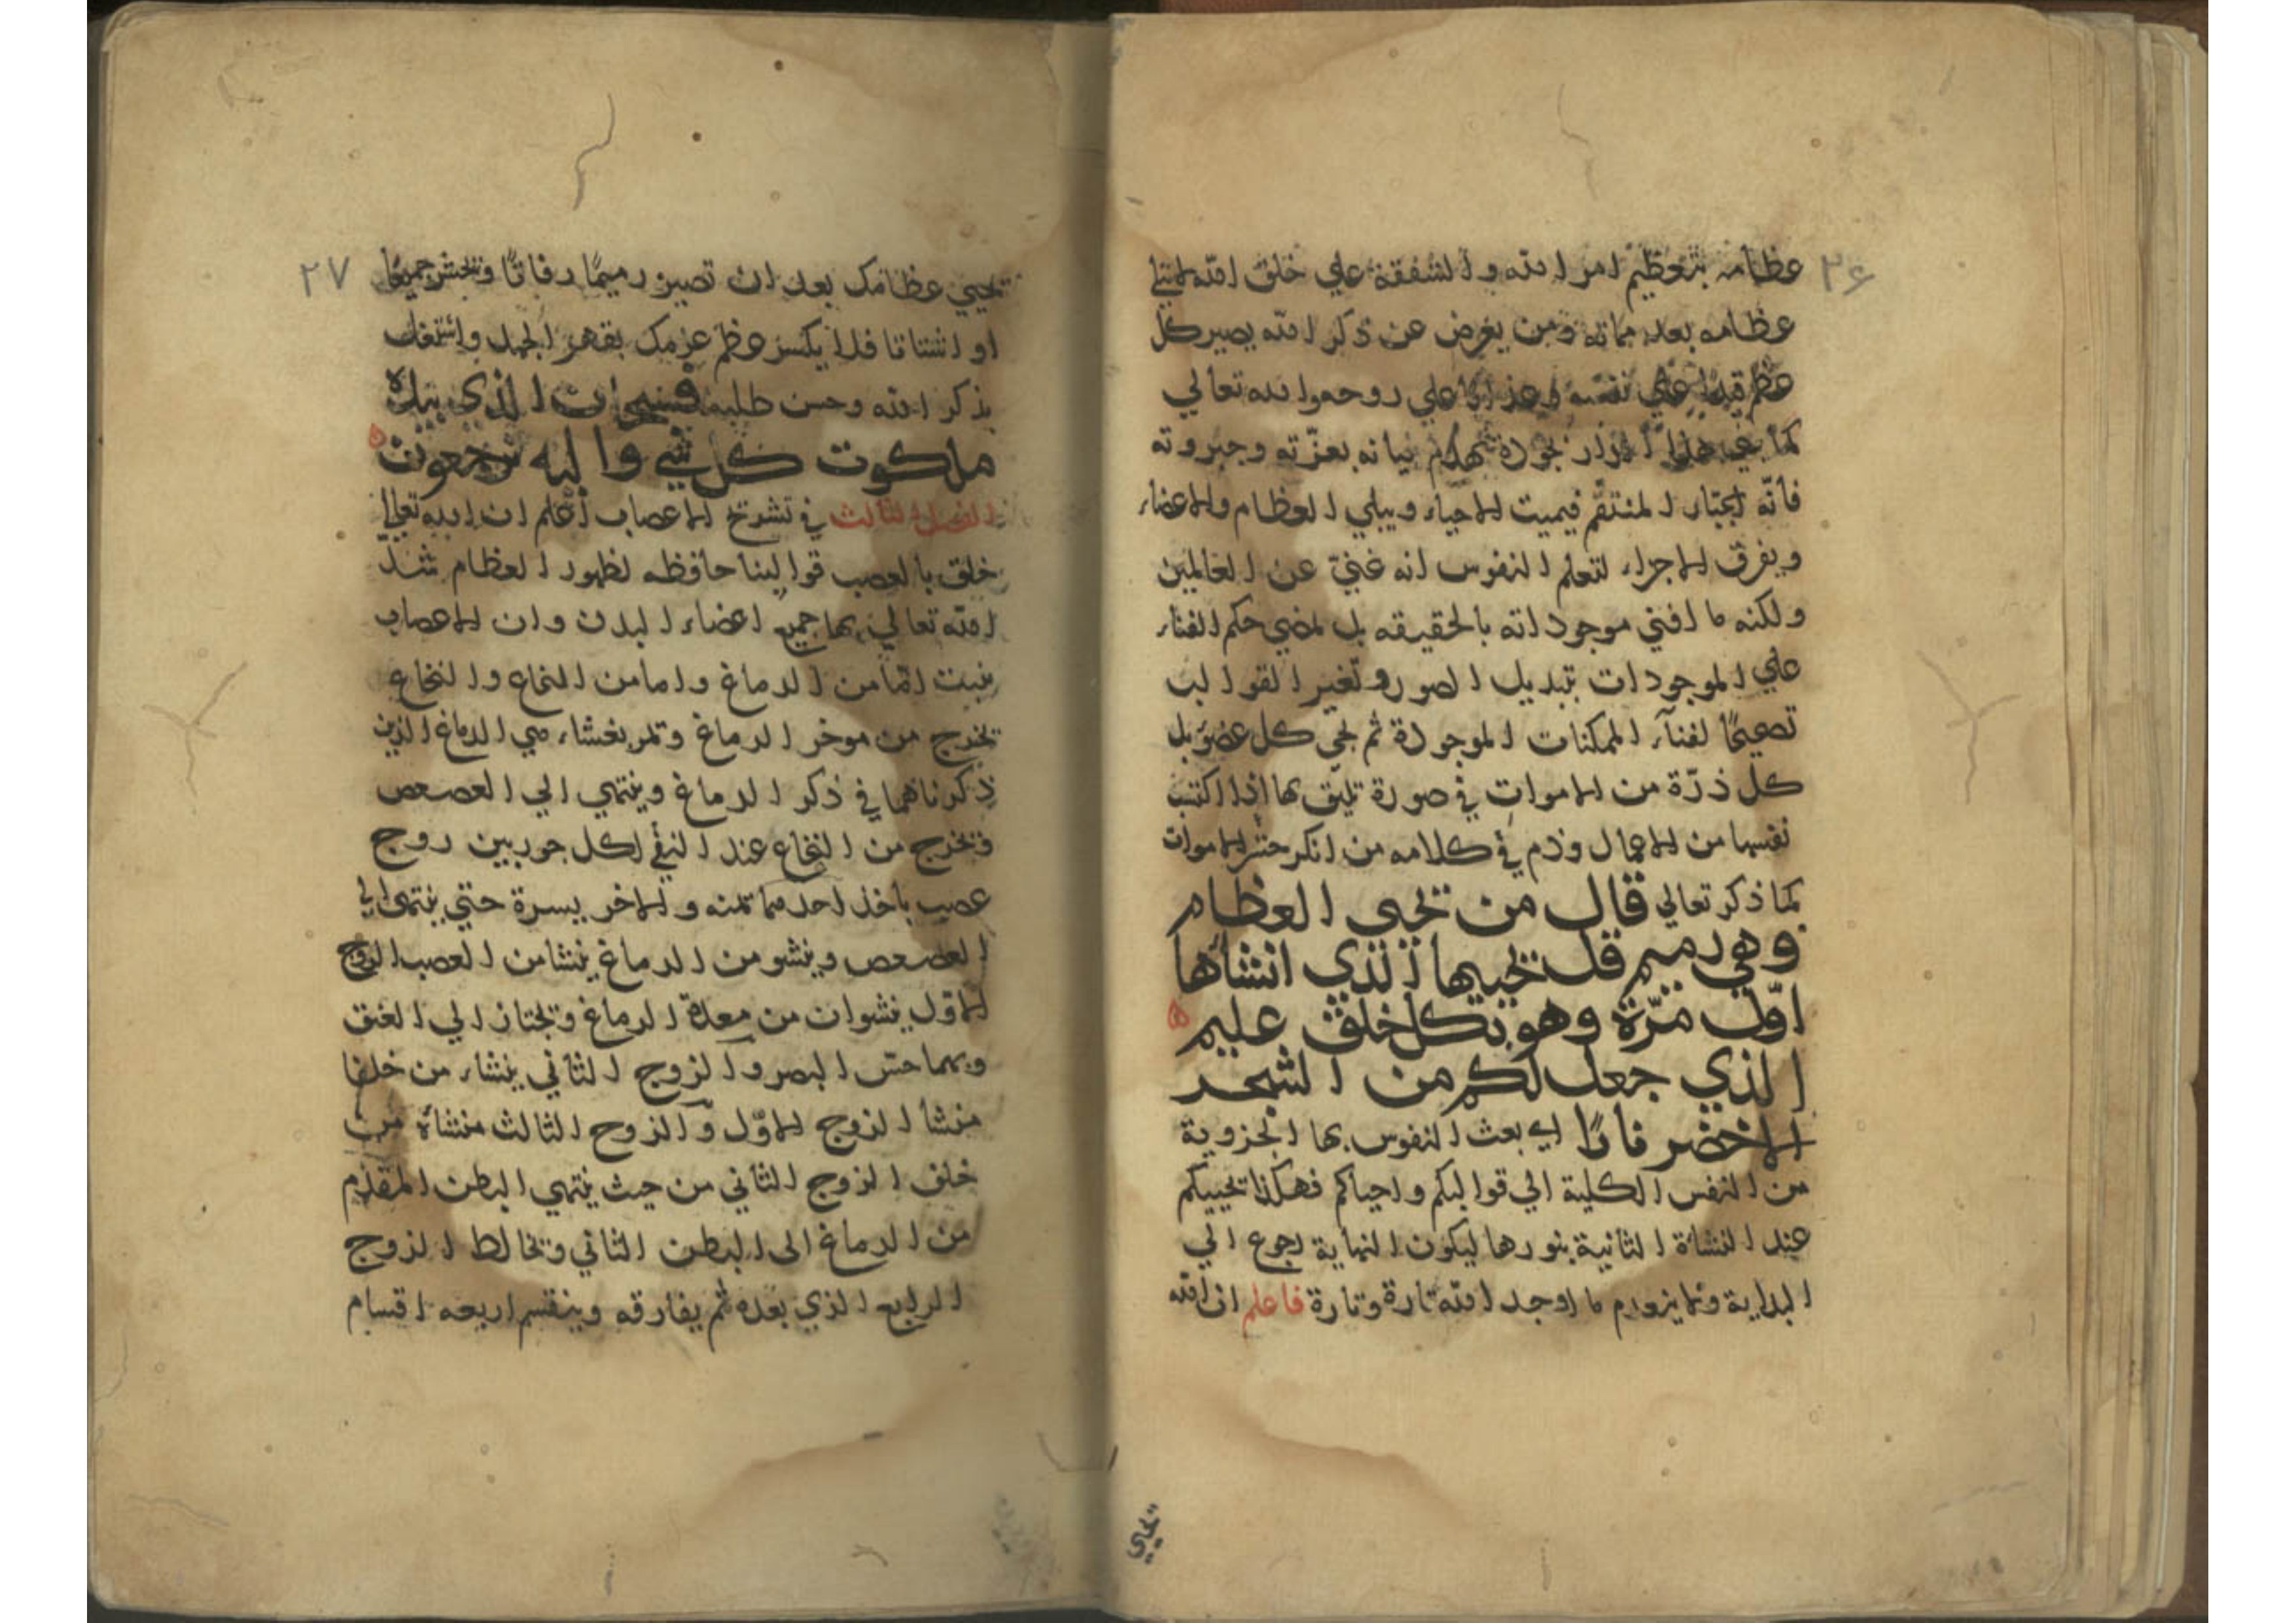 ٢۶
عظامه بتعظيم امر الله و الشفقة علي خلق الله
عظامه بعد مماته ومن يعرض عن ذكر الله يصير كل
عظم علي نفسه علي روحه والله تعالي
كما بعزّته وجبروته
فانّه المنتقم فيميت الاحياء ويبلي العظام والاعضاء
ويفرق الاجزاء لتعلم النفوس انه غنيّ عن العالمين
ولكنه ما افني موجوداته بالحقيقه بل حكم الفناء
علي الموجودات بتبديل الصور وتغير القوالب
تصحيحًا لفنآء الممكنات الموجودة ثم يحيي كل عضو بل
كل ذرّة من الاموات في صورة تليق بها اذا اكتسب
نفسها من الاعمال وذم في كلامه من انكر حشر الاموات
كما ذكر تعالي قال من يحيي العظام
وهي رميم قل يحييها الذي انشاها
اوّل مرّة وهو بكل خلق عليم
الذي جعل لكم من الشجر
الاخضر نارًا اي بعث النفوس بها الجزوية
من النفس الكلية الي قوالبكم واحياكم فهكذا يحييكم
عند النشاة الثانية بنورها ليكون النهاية رجوع الي
البداية ما اوجد الله تارة وتارة فاعلم ان الله
يحيي
٢٧
يحيي عظامك بعد ان تصير رميمًا رفاتًا ويحشر جميعًا
او اشتاتا فلا يكسر عظم عزمك بقهر الجهل واشتغل
بذكر الله وحسن طلبه فسبحان الذي بيده
ملكوت كل شي واليه ترجعون
الفصل الثالث في تشريح الاعصاب اعلم ان الله تعالي
خلق بالعصب قوالبنا حافظه لظهور العظام شدّ
الله تعالي بها جميع اعضاء البدن وان الاعصاب
ينبت امّا من الدماغ واما من النخاع والنخاع
يخرج من موخر الدماغ وتمر بغشاء الدماغ الذين
ذكرناهما في ذكر الدماغ وينتهي الي العصعص
ويخرج من النخاع عند لكل زوج
عصب ياخذ احدهما يمنه والاخر يسرة حتي ينتهي الي
العصعص وينشو من الدماغ ينشا من العصب الزوج
الاوّل ينشوان من الدماغ ويجتاز الي العنق
وبهما حسّ البصر والزوج الثاني ينشاء من خلف
منشا الزوج الاوّل والزوج الثالث منشاه من
خلف الزوج الثاني من حيث ينتهي البطن المقدّم
من الدماغ الى البطن الثاني ويخالط الزوج
الرابع الذي بعده ثم يفارقه وينقسم اربعه اقسام